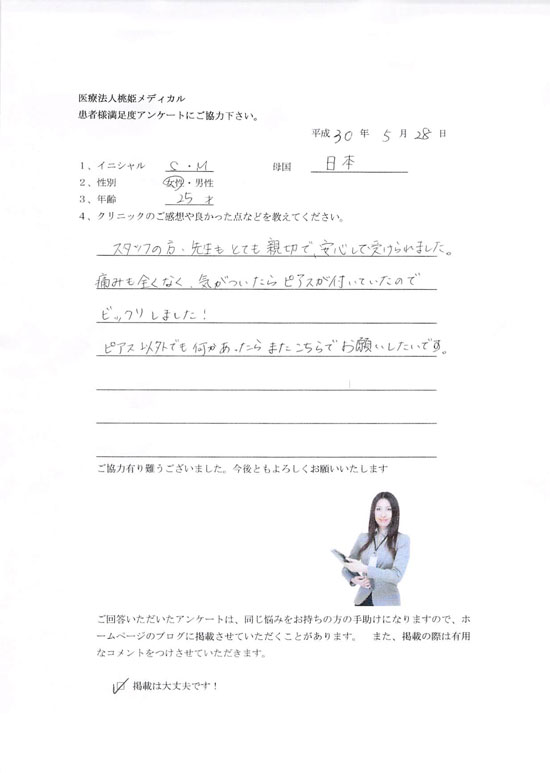 医療法人桃姫メディカル
患者様満足度アンケートにご協力下さい。
平成 30 年 5 月 28 日
1、イニシャル S・M 母国 日本
2、性別 女性・男性
3、年齢 25才
4、クリニックのご感想や良かった点などを教えてください。
スタッフの方・先生もとても親切で、安心して受けられました。
痛みも全くなく、気がついたらピアスが付いていたので
ビックリしました!
ピアス以外でも何かあったらまたこちらでお願いしたいです。
ご協力有り難うございました。今後ともよろしくお願いいたします
ご回答いただいたアンケートは、同じ悩みをお持ちの方の手助けになりますので、ホ
ームページのブログに掲載させていただくことがあります。 また、掲載の際は有用
なコメントをつけさせていただきます。
☑ 掲載は大丈夫です!